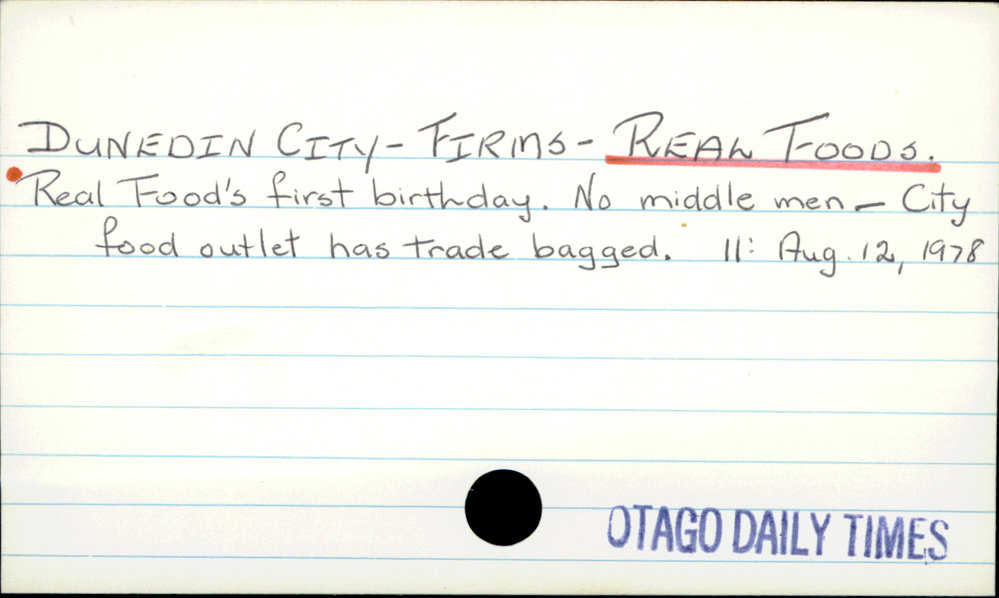 DUNEDIN CITY - FIRMS - REAL FOODS.
Real Food's first birthday. No middle men - City
food outlet has trade bagged. 11: Aug. 12, 1978
OTAGO DAILY TIMES